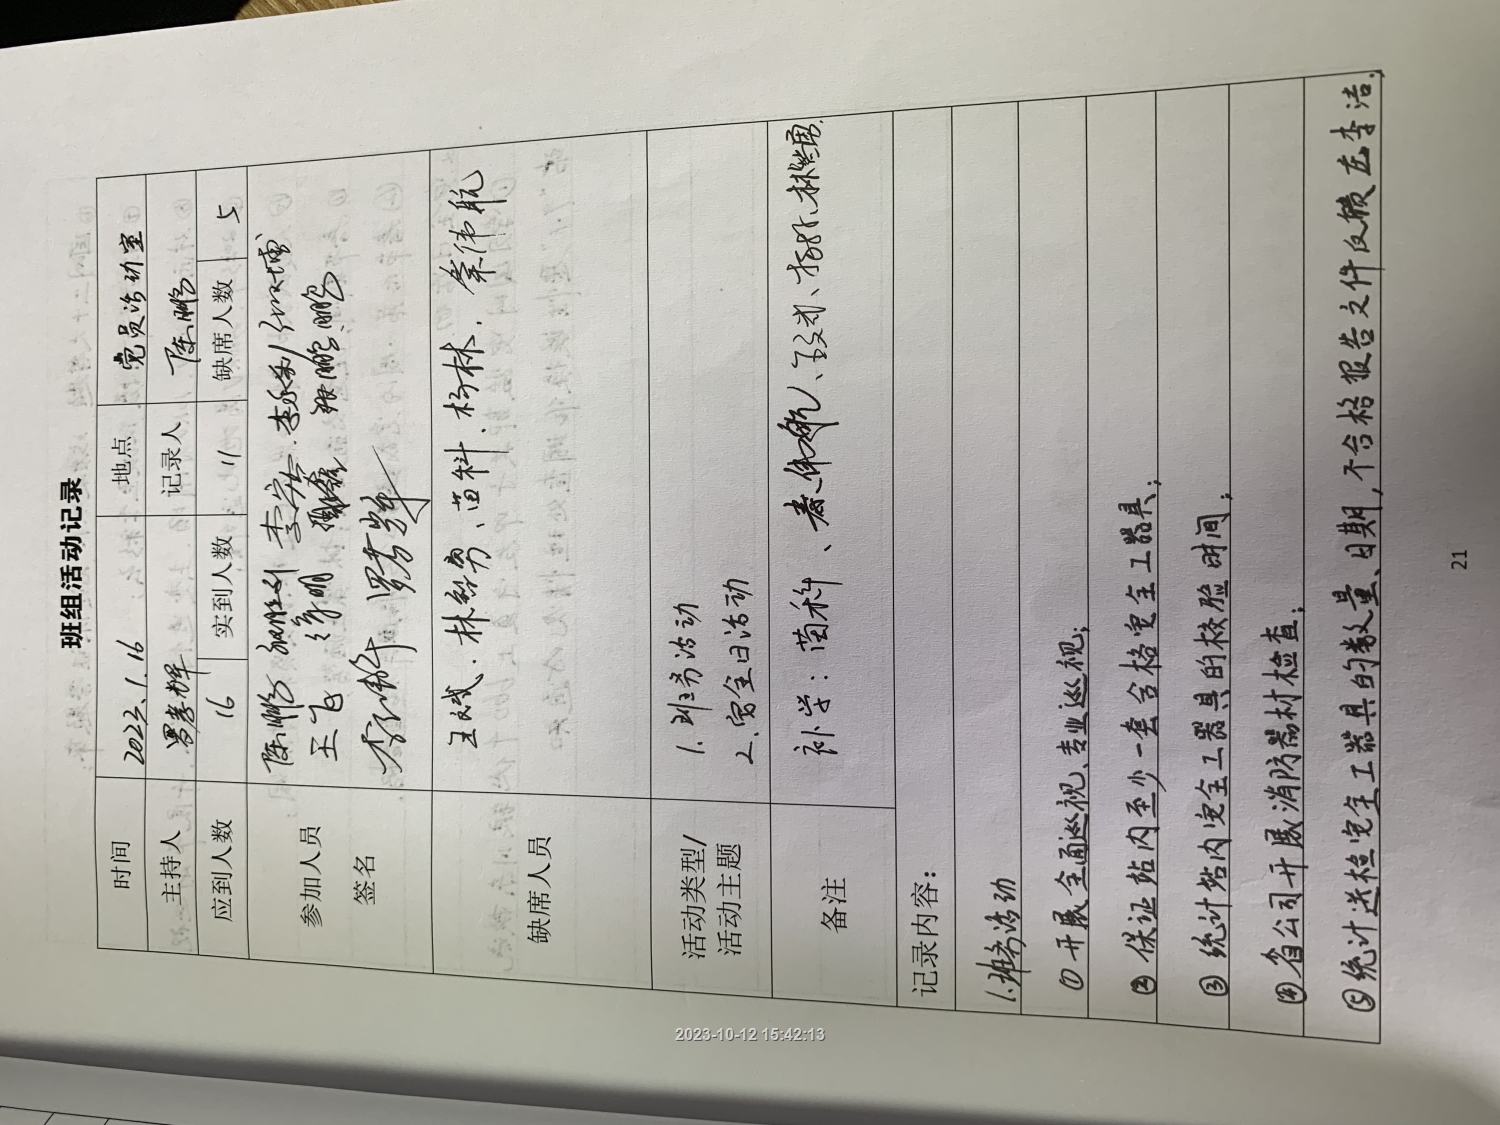 班组活动记录
时间 2023.1.16 地点 党员活动室
主持人 罗孝辉 记录人 陈鹏
应到人数 16 实到人数 11 缺席人数 5
参加人员 陈鹏 李宏 李永利
签名 王飞 徐明 张鹏鹏
罗孝辉
缺席人员 王斌、林紫勇、苗科、杨林、秦伟航
活动类型/ 1. 班务活动
活动主题 2. 安全日活动
备注 补学：苗科、秦伟航、王斌、杨林、林紫勇.
记录内容：
1. 班务活动
① 开展全面巡视、专业巡视；
② 保证站内至少一套合格安全工器具；
③ 统计站内安全工器具的校验时间；
④ 省公司开展消防器材检查；
⑤ 统计送检安全工器具的数量、日期，不合格报告文件反馈至李洁.
21
2023-10-12 15:42:13